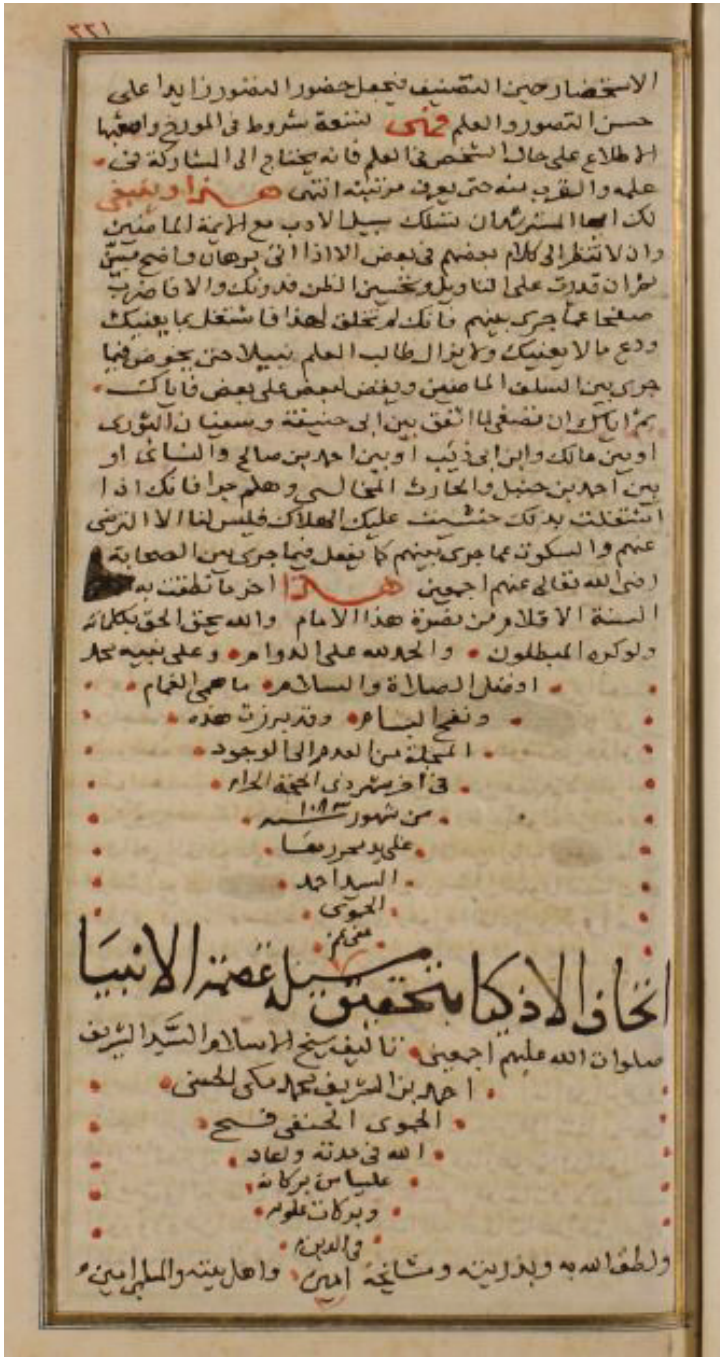 ٢٢١
الاستحضار حين التصنيف فيجعل حضور التصور زايدا على
حسن التصور والعلم فهى تسعة شروط فى المورخ واصعبها
الاطلاع على حال الشخص فى العلم فانه يحتاج الى المشاركة فى
علمه والقرب منه حتى يعرف مرتبته انتهى هذا وينبغى
لك ايها المسترشد ان تسلك سبيل الادب مع الايمة الماضيين
وان لا تنظر الى كلام بعضهم فى بعض الا اذا اتى ببرهان واضح مبين
ثم ان قدرت على التاويل وتحسين الظن فدونك والا فاضرب
صفحا عما جرى بينهم فانك لم تخلق لهذا فاشتغل بما يعنيك
ودع مالا يعنيك ولا يزال طالب العلم نبيلا حتى يخوض فيما
جرى بين السلف الماضيين ويقضى لبعض على بعض فاياك
ثم اياك ان تصغى لما اتفق بين ابى حنيفة وسفيان الثورى
او بين مالك وابن ابى ذئب او بين احمد بن صالح والنسائى او
بين احمد بن حنبل والحارث المحاسبى وهلم جرا فانك اذا
اشتغلت بذلك خشيت عليك الهلاك فليس لنا الا الترضى
عنهم والسكوت عما جرى بينهم كما يفعل فيما جرى بين الصحابة
رضى الله تعالى عنهم اجمعين هذا اخر ما نطقت به
السنة الاقلام من نصرة هذا الامام والله يحق الحق بكلماته
ولو كره المبطلون والحمد لله على الدوام وعلى نبيه محمد
افضل الصلاة والسلام ما همى الغمام
وقد برزت هذه
المجلة من العدم الى الوجود
فى اخر شهر ذى الحجة الحرام
من شهور سنة ١٠٨٣
على يد محررها
السيد احمد
الحموى
اتحاف الاذكيا بتحقيق مسيلة عصمة الانبيا
صلوات الله عليهم اجمعين تاليف شيخ الاسلام السيد الشريف
احمد بن الشريف محمد مكى الحسنى
الحموى الحنفى فسح
الله فى مدته واعاد
علينا من بركاته
وبركات علومه
فى الدين
ولطف الله به وبذريته ومشايخه امين واهل بيته والمسلمين امين